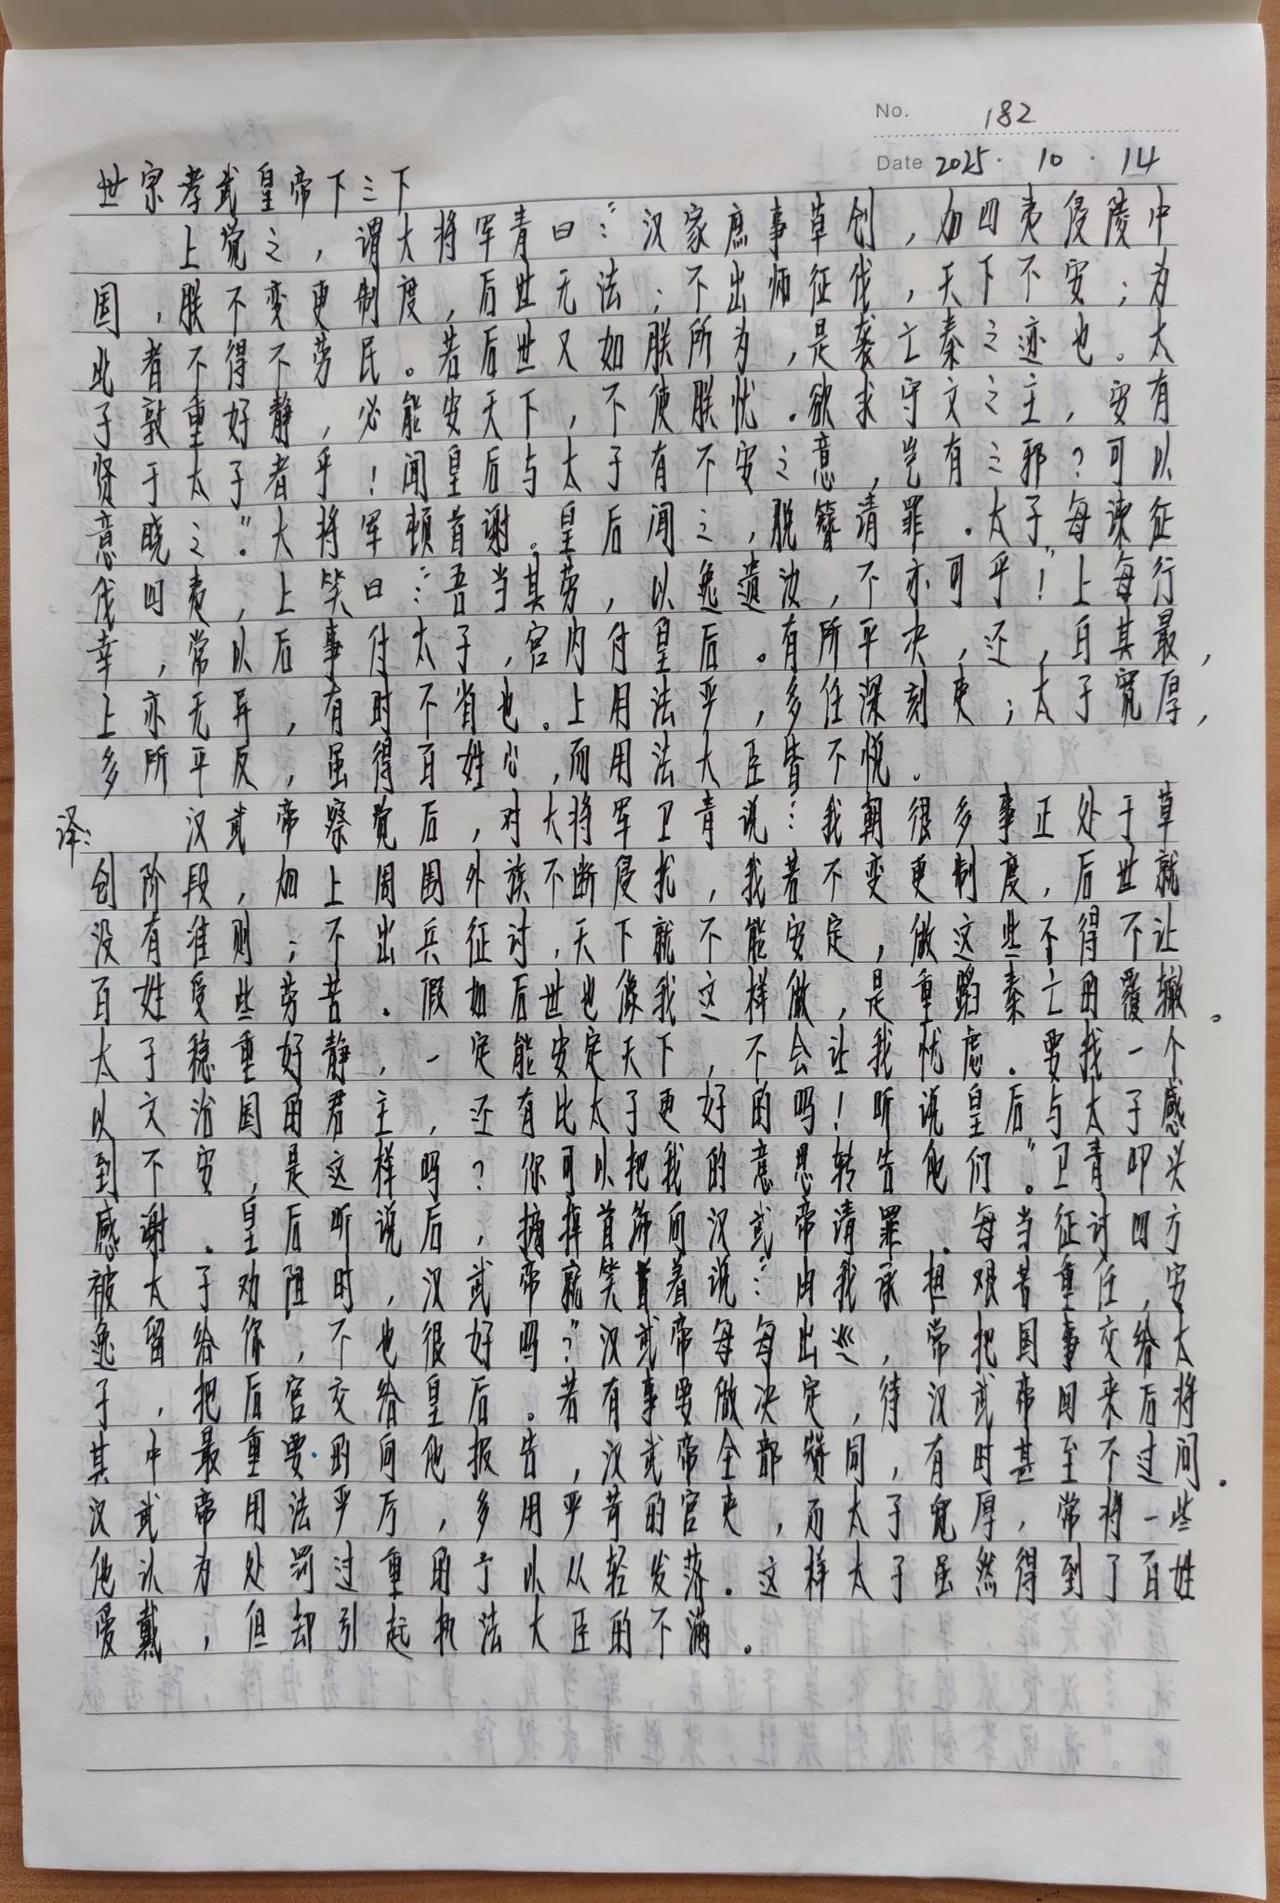 No. 182
Date 2025 · 10 · 14
世宗孝武皇帝下之下
上觉之，谓大将军青曰：“汉家庶事草创，加四夷侵陵中
国，朕不变更制度，后世无法；不出师征伐，天下不安；为
此者不得不劳民。若后世又如朕所为，是袭亡秦之迹也。太
子敦重好静，必能安天下，不使朕忧。欲求守文之主，安有
贤于太子者乎！闻皇后与太子有不安之意，岂有之邪？可以
意晓之。”大将军顿首谢。皇后闻之，脱簪请罪。太子每谏征
伐四夷，上笑曰：“吾当其劳，以逸遗汝，不亦可乎！”上每行
幸，常以后事付太子，宫内付皇后。有所平决，还，白其最，
上亦无异，有时不省也。上用法严，多任深刻吏；太子宽厚，
多所平反，虽得百姓心，而用法大臣皆不悦。
译：汉武帝察觉后，对大将军卫青说：“我朝很多事正处于草
创阶段，加上周围外族不断侵扰，我若不变更制度，后世就
没有准则；不出兵征讨，天下就不能安定，做这些不得不让
百姓受些劳苦。假如后世也像我这样做，是重蹈秦亡的覆辙。
太子稳重好静，一定能安定天下，不会让我忧虑。要找一个
以文治国的君主，还有比太子更好的吗！听说皇后与太子感
到不安，是这样吗？你可以把我的意思转告他们。”卫青叩头
感谢。皇后听说后，摘掉首饰向汉武帝请罪。每当征讨四方
被太子劝阻时，汉武帝就笑着说：“由我承担艰苦重任，安
逸留给你，不也很好吗？”汉武帝每每出巡，常把国事交给太
子，把后宫交给皇后。若有事要做决定，待汉武帝回来后将
其中最重要的向他报告，汉武帝全部赞同，有时甚至不过问。
汉武帝用法严厉，多用严苛的官吏，而太子宽厚，常将一些
他认为处罚过重的予以从轻发落。这样太子虽然得到了百姓
爱戴，但却引起执法大臣的不满。